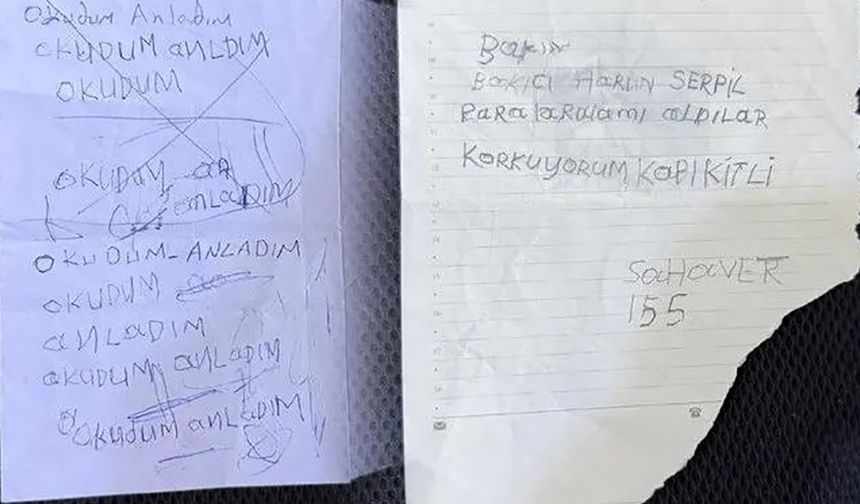 Okudum Anladım
OKUDUM anLDIM
OKUDUM
OKUDUM an
anLaDIM
OKUDUM-ANLADIM
OKUDUM
anLaDIM
OKUDUM anLaDIM
OKUDUM anLaDIM
Bakın
BaKICI HARUN SERPİL
PaRalaRımı alDILAR
KORKUYORUM KaPI KİTLİ
SaHaVET
155